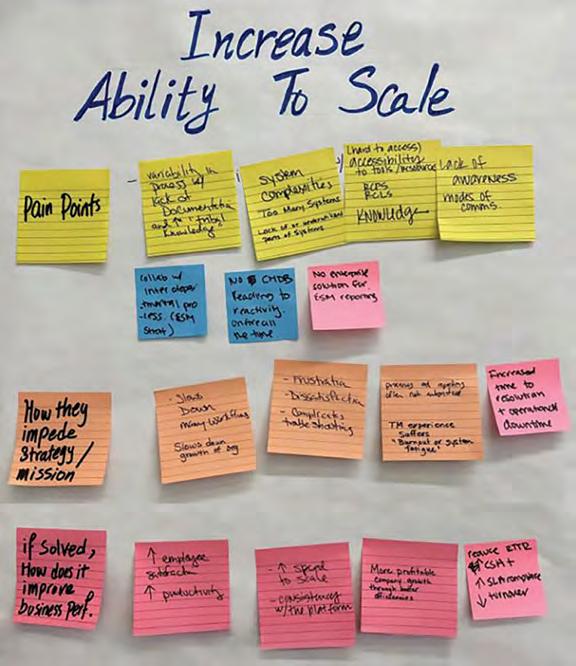 Increase
Ability To Scale
Pain Points
variability in
process w/
lack of
Documentation
and ↑ "tribal
knowledge"
System
complexities
Too Many Systems
Lack of or
parts of systems
(hard to access)
accessibility
to tools/resource
KNOWledge
Lack of
awareness
modes of
comms.
Collab w/
inter depar
-tmental pro
-cess. (ESM
Strat)
NO CMDB
leading to
reactivity.
on fire all
the time
No enterprise
solution for
ESM reporting
How they
impede
strategy/
mission
- Slows
Down
many workflows
Slows down
growth of org
- Frustration
- Dissatisfaction
- Complicates
trouble shooting
often not submitted
TM experience
Suffers
"Burnout or system
fatigue"
Increased
time to
resolution
+ operational
downtime
if solved,
How does it
improve
business perf.
↑ employee
satisfaction
↑ productivity
- ↑ speed
to scale
- consistency
w/ the platform
More profitable
company growth
through better
efficiencies
reduce MTTR
CSAT
↑ SLA compliance
↓ turnover